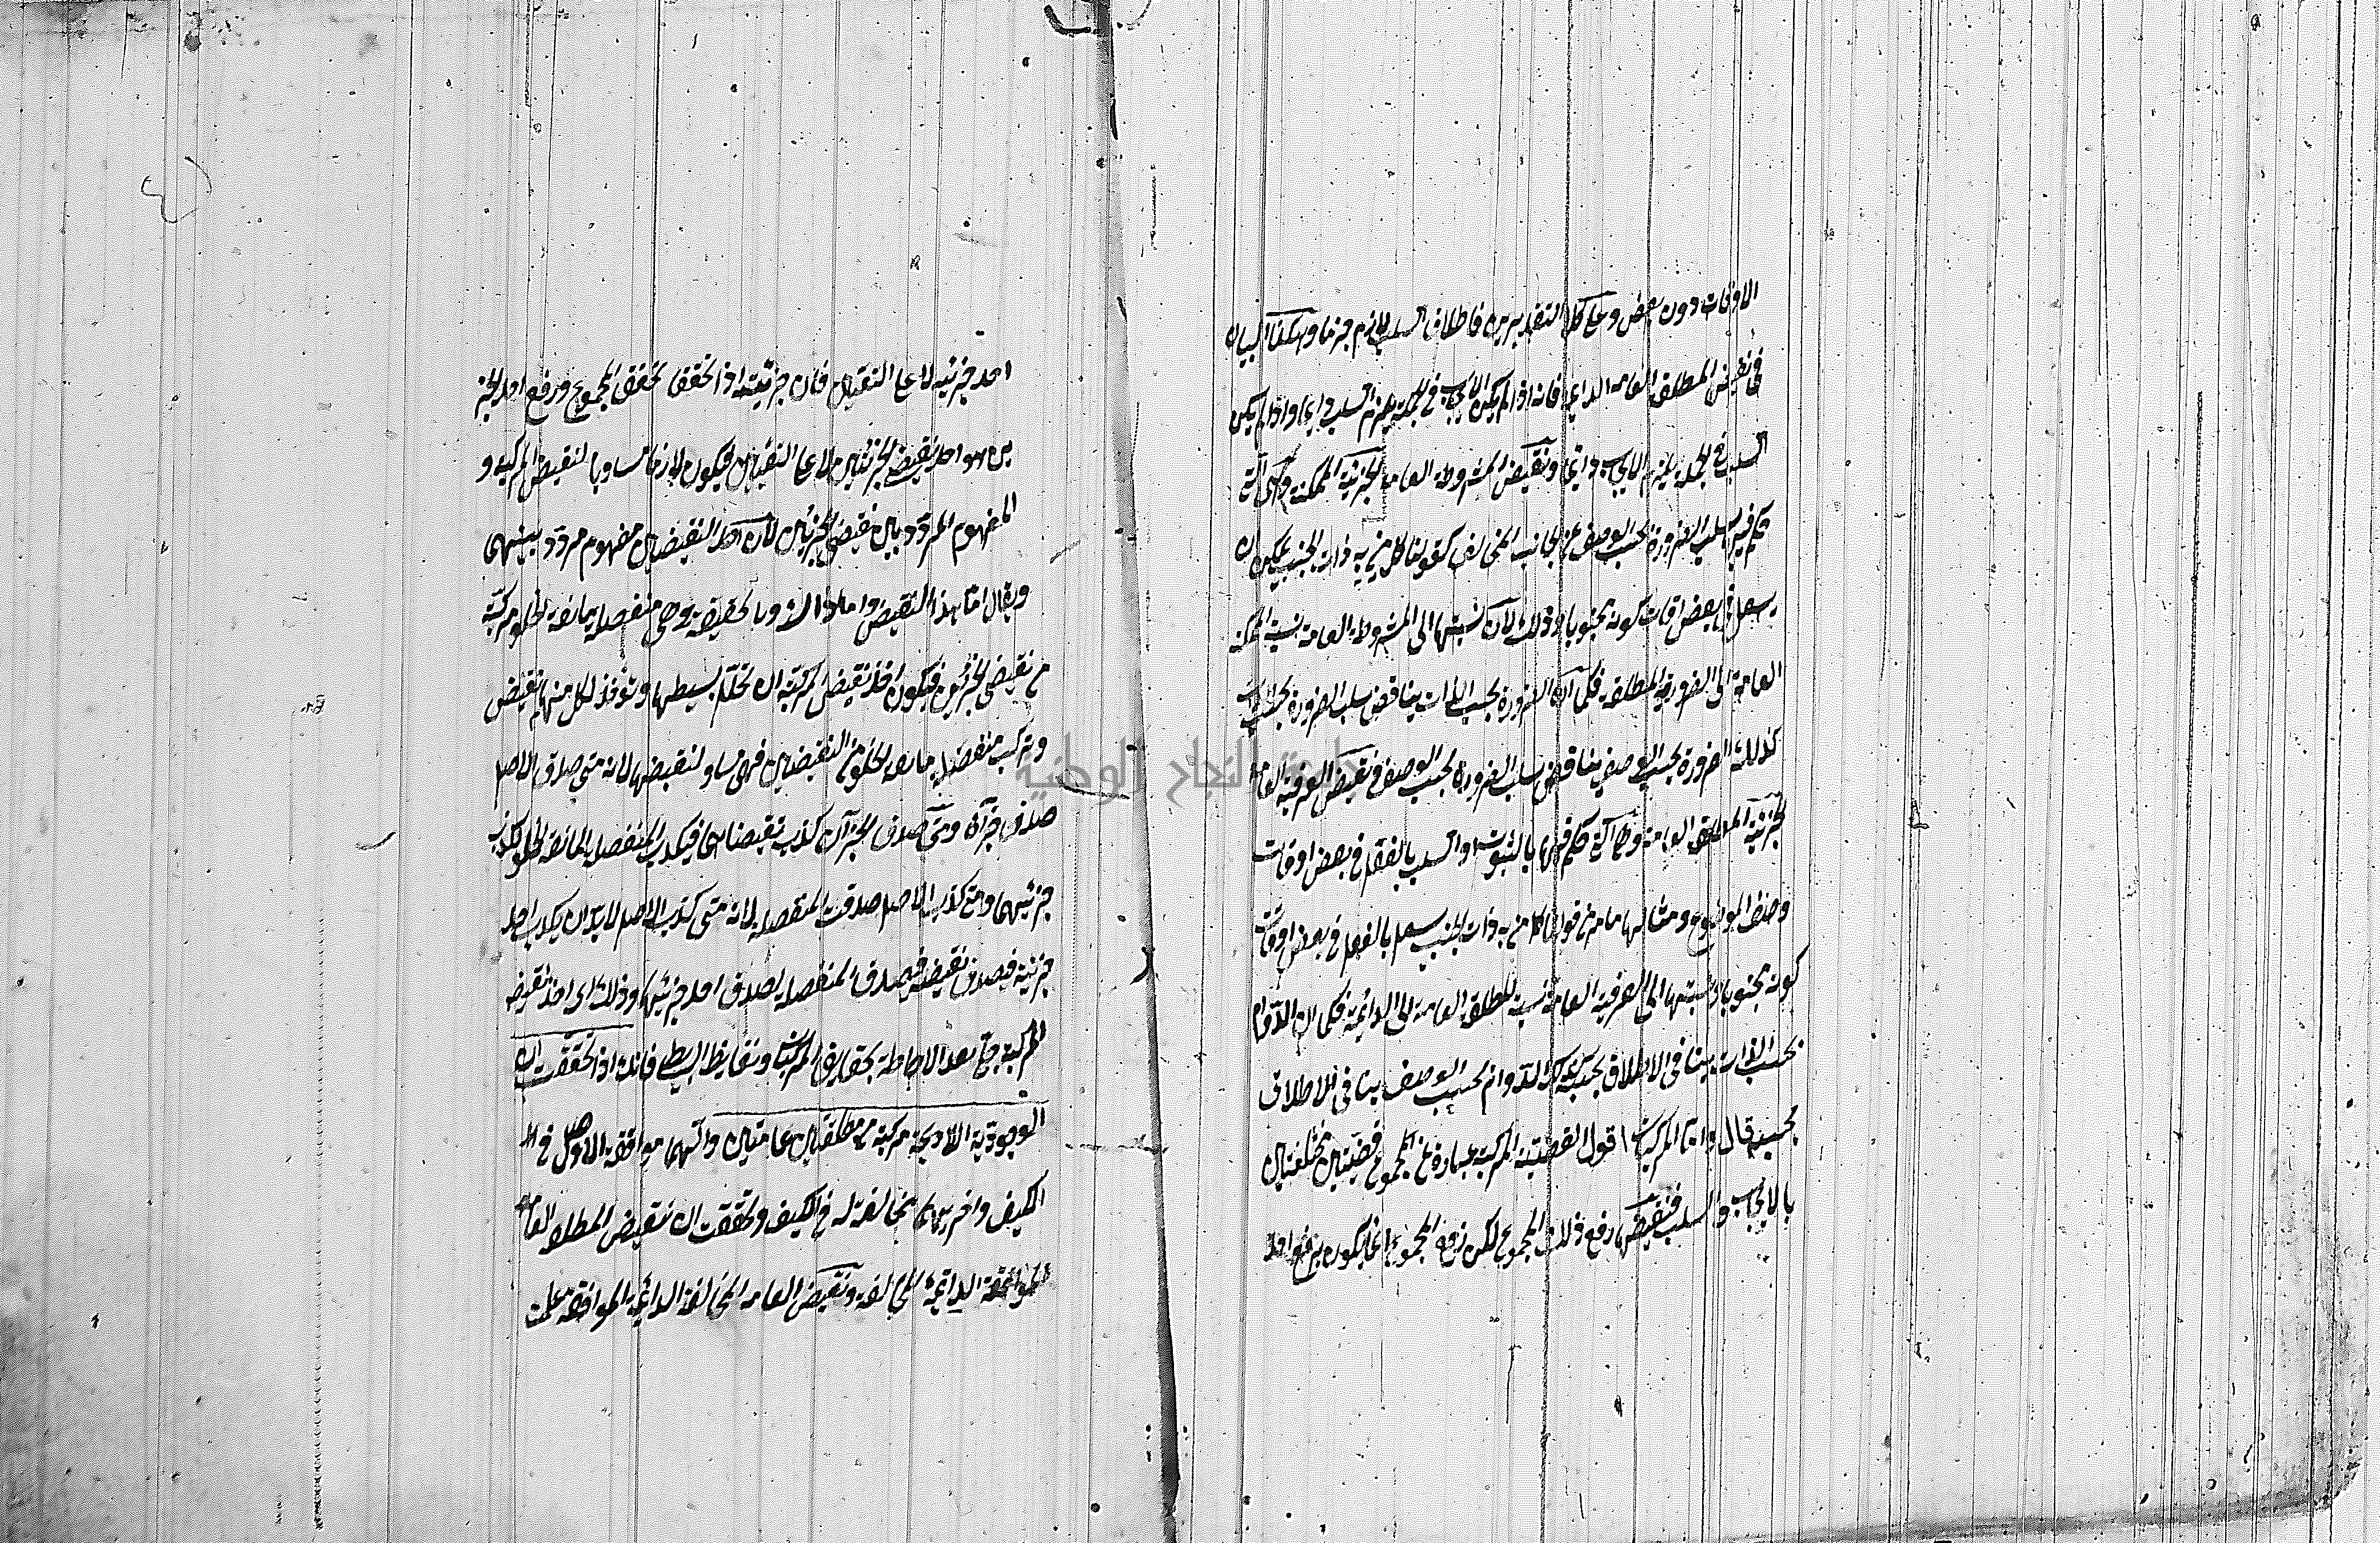 الاوقات دون بعض وعلى كلا التقديرين فاطلاق السلب لازم جزما وهكذا البيان
في نقيض المطلقة العامة الدايمة فانه اذا لم يكن الايجاب في الجملة يلزم السلب دايما واذا لم يكن
السلب في الجملة يلزم الايجاب دايما ونقيض المشروطة العامة الحينية الممكنة وهي التي
حكم فيها بسلب الضرورة بحسب الوصف عن الجانب المخالف كقولنا كل من به ذات الجنب يمكن ان
يسعل في بعض اوقات كونه مجنوبا وذلك لان نسبتها الى المشروطة العامة نسبة الممكنة
العامة الى الضرورية المطلقة فكما ان الضرورة بحسب الذات يناقض سلب الضرورة بحسب الذات
كذلك الضرورة بحسب الوصف يناقض سلب الضرورة بحسب الوصف ونقيض العرفية العامة
الحينية المطلقة العامة وهي التي حكم فيها بالثبوت او السلب بالفعل في بعض اوقات
وصف الموضوع ومثالها ما مر من قولنا كل من به ذات الجنب يسعل بالفعل في بعض اوقات
كونه مجنوبا ونسبتها الى العرفية العامة نسبة المطلقة العامة الى الدائمة فكما ان الدوام
بحسب الذات ينافي الاطلاق بحسبه كذلك الدوام بحسب الوصف ينافي الاطلاق
بحسبه قال واما المركبة اقول القضية المركبة عبارة عن مجموع قضيتين مختلفتين
بالايجاب والسلب فنقيضها رفع ذلك المجموع لكن رفع المجموع انما يكون برفع احد
احد جزئيه لا على التعيين فان جزئيته اذا تحقق تحقق المجموع ورفع احد الجزئـ
ين هو احد نقيضي الجزئين لا على التعيين فيكون لازما مساويا لنقيض المركبة و
المفهوم المردد بين نقيضي الجزئين لان احد النقيضين مفهوم مردد بينهما
ويقال اما هذا النقيض واما ذاك وبالحقيقة هي منفصلة مانعة الخلو مركبة
من نقيضي الجزئين فيكون اخذ نقيض المركبة ان تحلل بسيطها ويؤخذ لكل منهما نقيض
وتركب منفصلة مانعة الخلو من النقيضين فهي مساو لنقيضها لانه متى صدق الاصل
صدق جزآه ومتى صدق الجزآن كذب نقيضاهما فيكذب المنفصلة المانعة الخلو لكذب
جزئيها ومتى كذب الاصل صدقت المنفصلة لانه متى كذب الاصل لابد ان يكذب احد
جزئيه فيصدق نقيضه فيصدق المنفصلة لصدق احد جزئيها وذلك اي اخذ نقيض
المركبة جلي بعد الاحاطة بحقايق المركبات ونقايض البسايط فانك اذا تحققت ان
الوجودية اللادائمة مركبة من مطلقتين عامتين اوليهما موافقة للاصل في
الكيف واخريهما مخالفة له في الكيف وتحققت ان نقيض المطلقة العامة
الموافقة الدائمة المخالفة ونقيض العامة المخالفة الدائمة الموافقة علمت